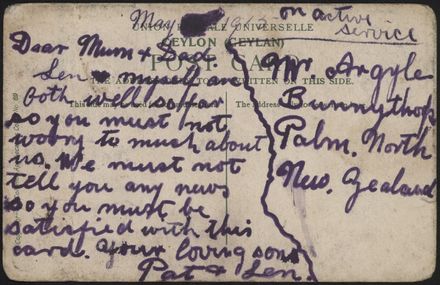 May 1915
on active
service
UNION POSTALE UNIVERSELLE
CEYLON (CEYLAN)
POST CARD
THE ADDRESS TO BE WRITTEN ON THIS SIDE.
Dear Mum &
Len & myself are
both well so far
so you must not
worry to much about
us. We must not
tell you any news
so you must be
satisfied with this
card. Your loving sons
Pat & Len.
Mr. Argyle
Bunnythop
Palm. North
New. Zealand